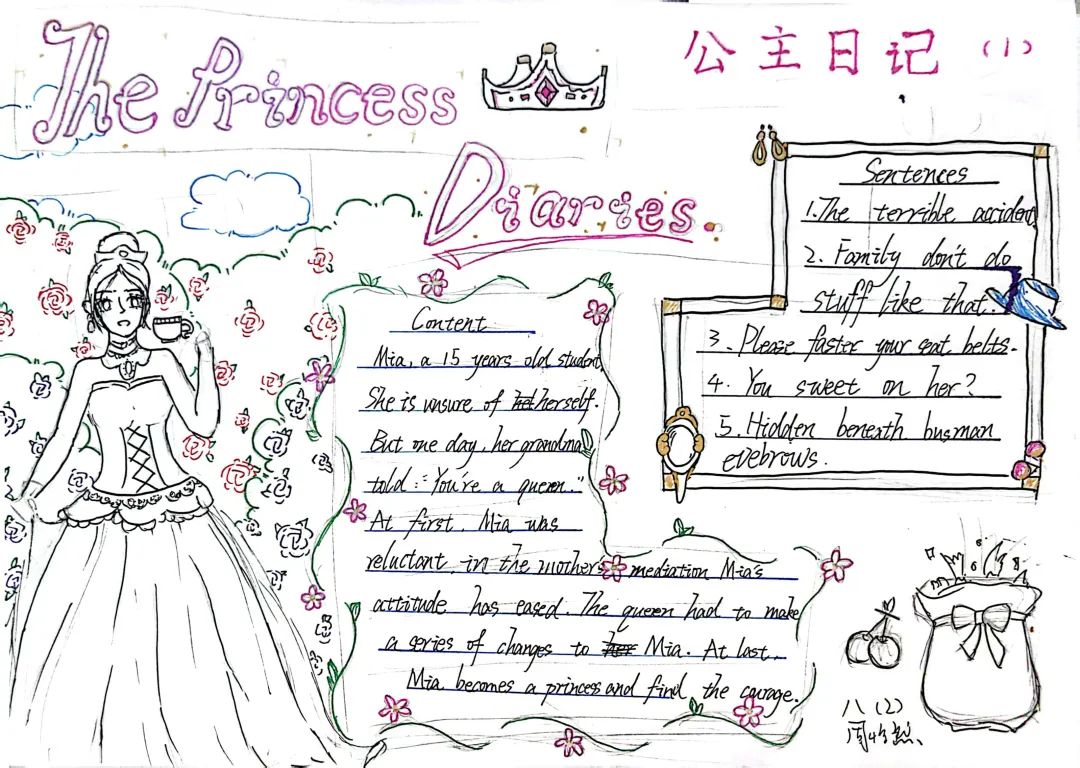 The Princess
Diaries
公主日记 (1)
Sentences
1. The terrible accident
2. Family don't do
stuff like that.
3. Please faster your seat belts.
4. You sweet on her?
5. Hidden beneath busman
eyebrows.
Content
Mia, a 15 years old student
She is unsure of her herself.
But one day, her grandma
told: "You're a queen."
At first, Mia was
reluctant, in the mother's mediation Mia's
attitude has eased. The queen had to make
a series of changes to her Mia. At last,
Mia becomes a princess and find the courage.
八 (2)
周